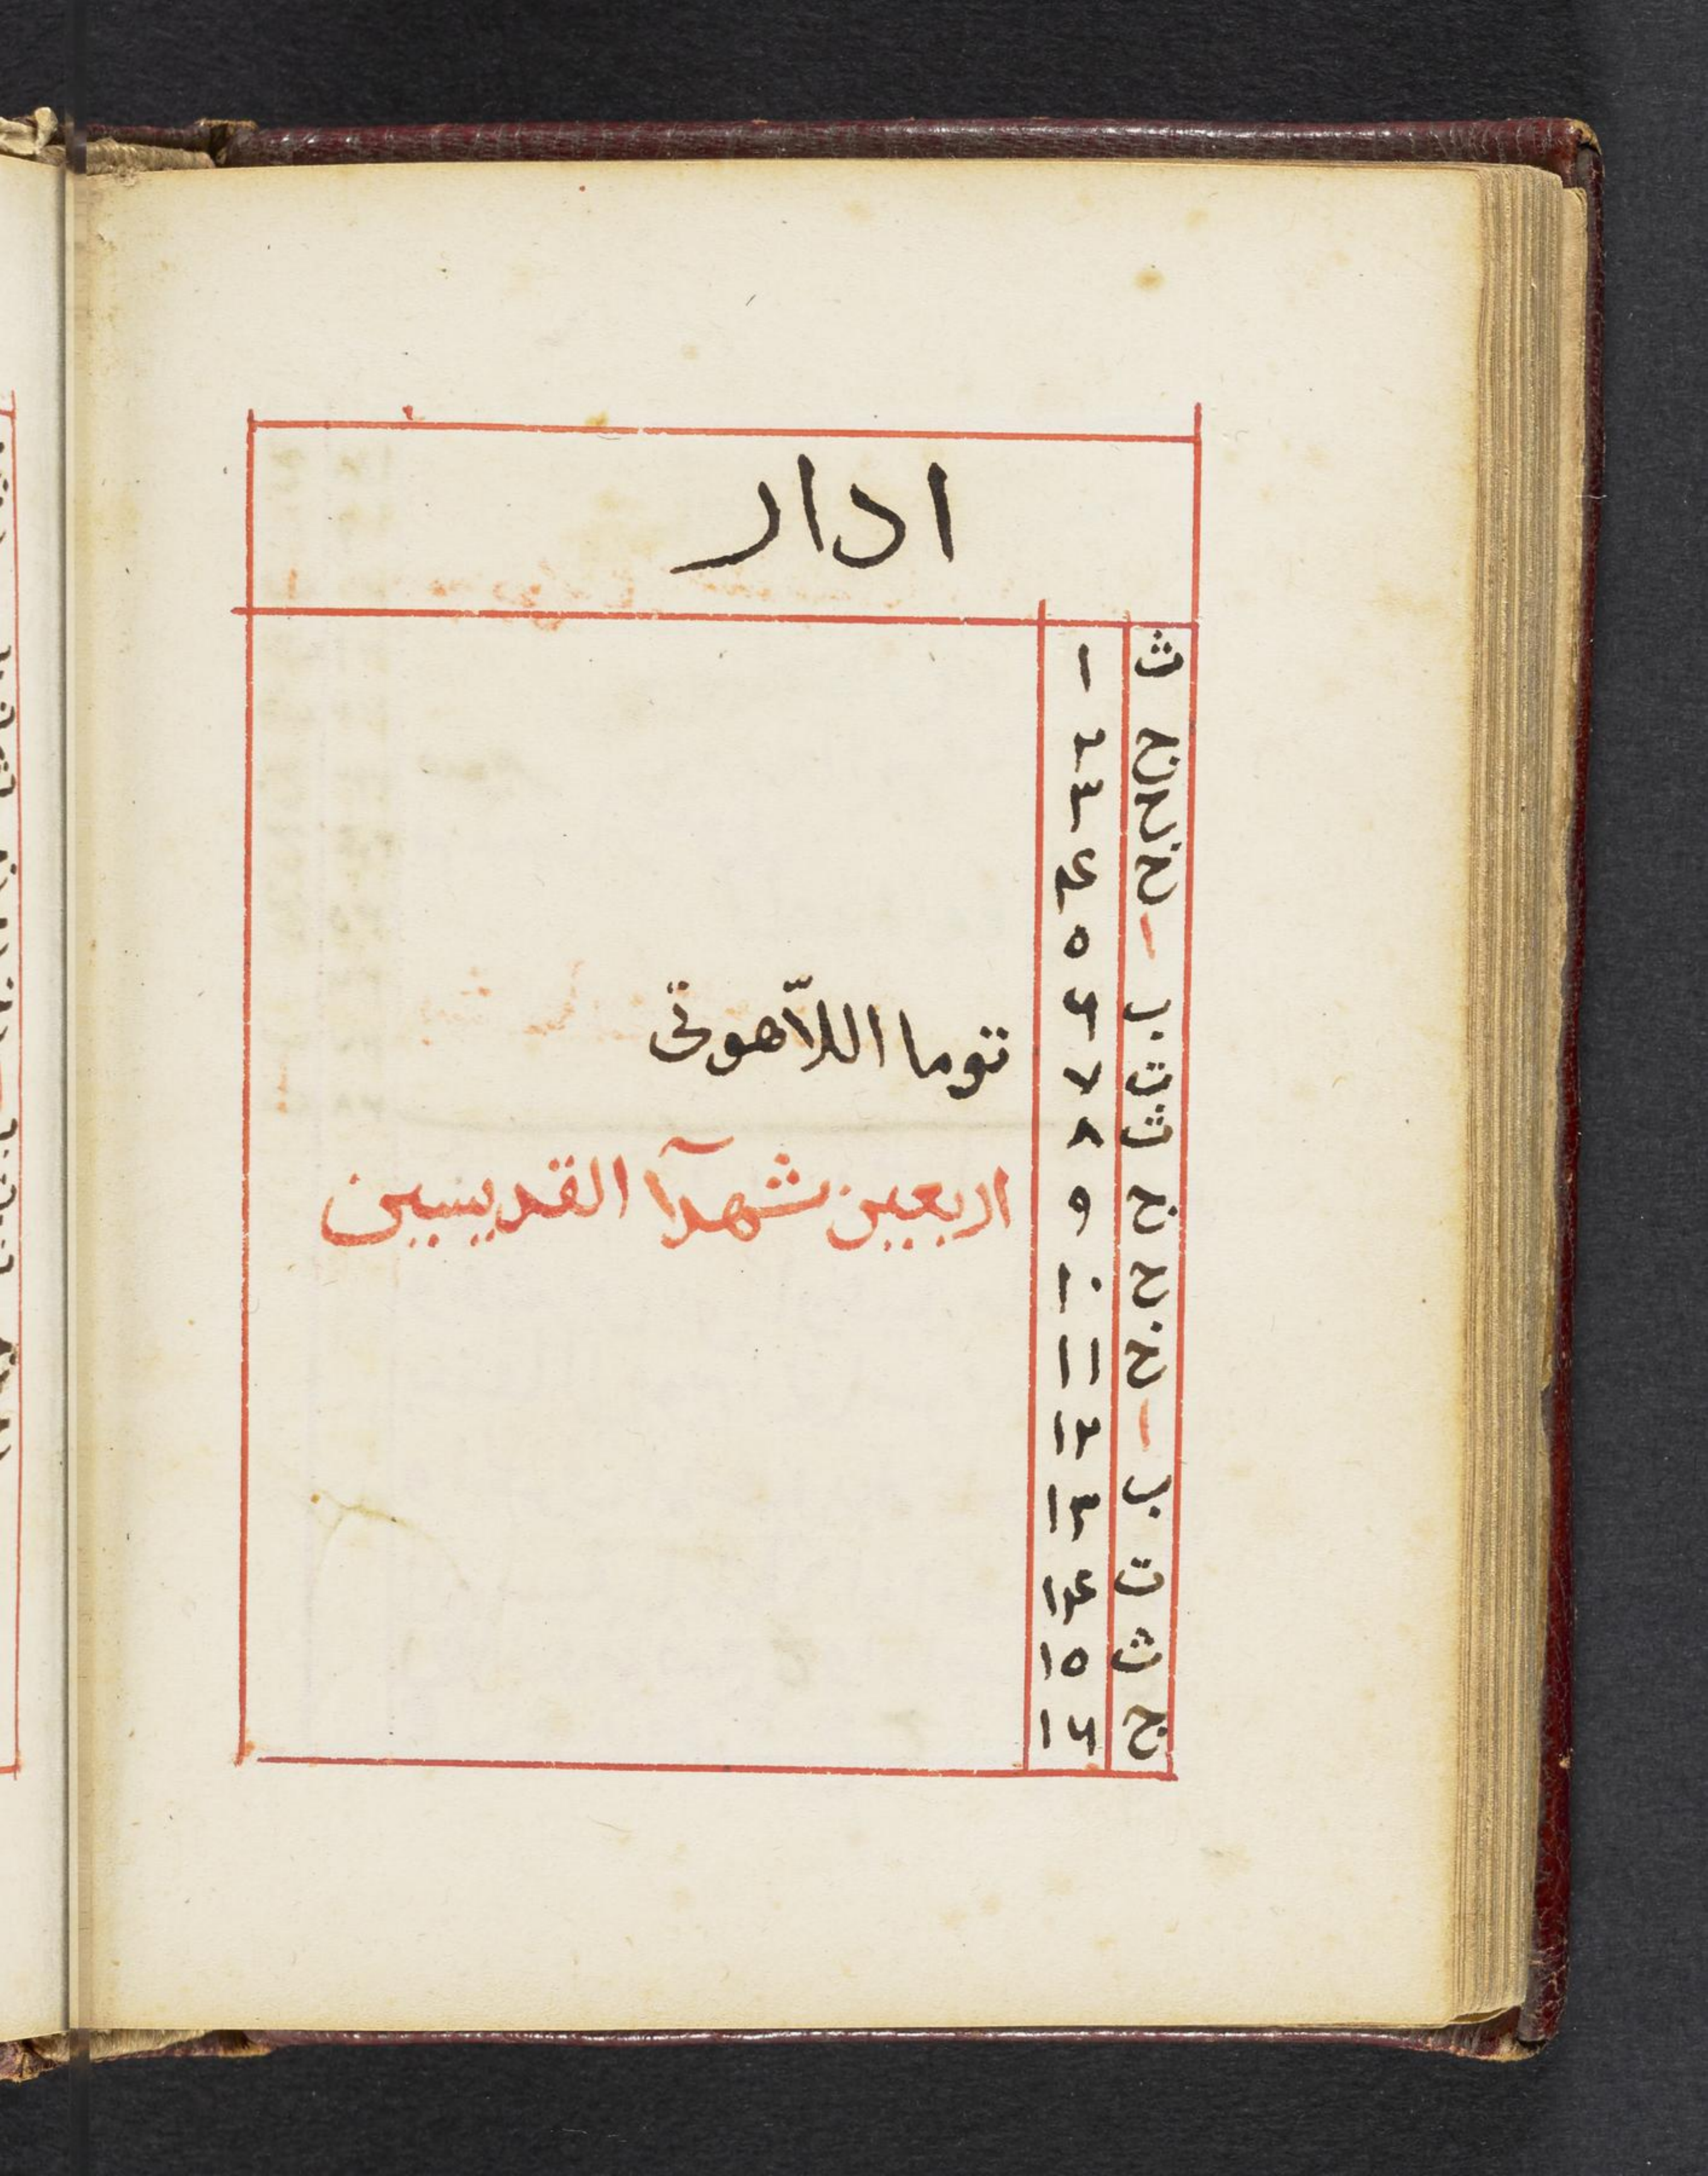 ادار
ث ١
ج ٢
ح ٣
خ ٤
ا ٥
ب ٦
ت ٧ توما اللاّهوتى
ث ٨
ج ٩ اربعين شهدآ القديسين
ح ١٠
خ ١١
ا ١٢
ب ١٣
ت ١٤
ث ١٥
ج ١٦